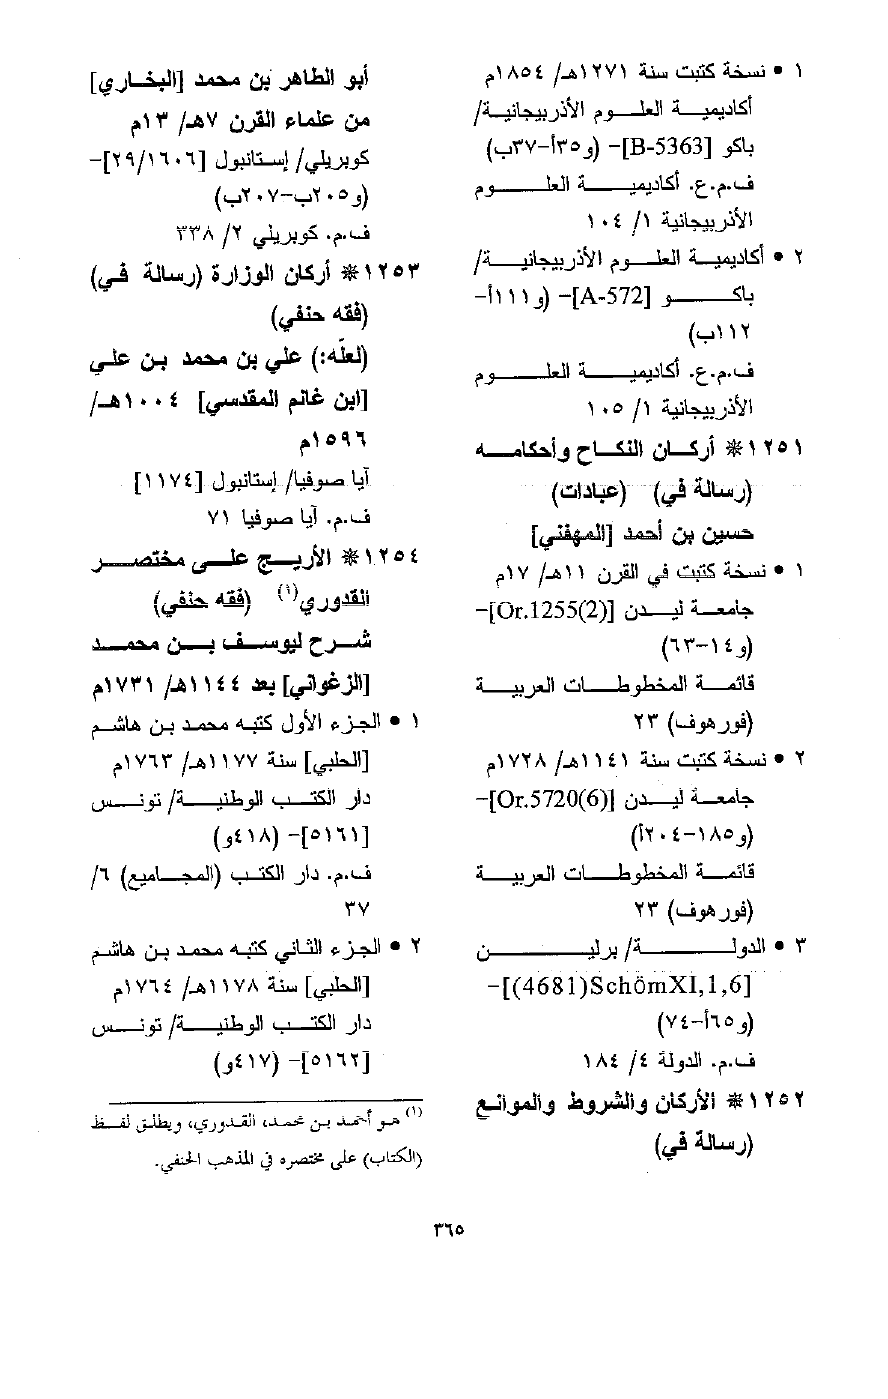 ١ • نسخة كتبت سنة ١٢٧١هـ/ ١٨٥٤م
أكاديمية العلوم الأذربيجانية/
باكو [B-5363]- (و٣٥أ-٣٧ب)
ف.م.ع. أكاديمية العلوم
الأذربيجانية ١/ ١٠٤
٢ • أكاديمية العلوم الأذربيجانية/
باكو [A-572]- (و١١١أ-
١١٢ب)
ف.م.ع. أكاديمية العلوم
الأذربيجانية ١/ ١٠٥
١٢٥١ * أركان النكاح وأحكامه
(رسالة في) (عبادات)
حسين بن أحمد [المهفني]
١ • نسخة كتبت في القرن ١١هـ/ ١٧م
جامعة ليدن [Or.1255(2)]-
(و١٤-٦٣)
قائمة المخطوطات العربية
(فورهوف) ٢٣
٢ • نسخة كتبت سنة ١١٤١هـ/ ١٧٢٨م
جامعة ليدن [Or.5720(6)]-
(و١٨٥-٢٠٤أ)
قائمة المخطوطات العربية
(فورهوف) ٢٣
٣ • الدولة/ برلين
[(4681)SchömXI,1,6]-
(و٦٥أ-٧٤)
ف.م. الدولة ٤/ ١٨٤
١٢٥٢ * الأركان والشروط والموانع
(رسالة في)
أبو الطاهر بن محمد [البخاري]
من علماء القرن ٧هـ/ ١٣م
كوبريلي/ إستانبول [٢٩/١٦٠٦]-
(و٢٠٥ب-٢٠٧ب)
ف.م. كوبريلي ٢/ ٣٣٨
١٢٥٣ * أركان الوزارة (رسالة في)
(فقه حنفي)
(لعلّه:) علي بن محمد بن علي
[ابن غانم المقدسي] ١٠٠٤هـ/
١٥٩٦م
آيا صوفيا/ إستانبول [١١٧٤]
ف.م. آيا صوفيا ٧١
١٢٥٤ * الأريج على مختصر
القدوري(١) (فقه حنفي)
شرح ليوسف بن محمد
[الزغواني] بعد ١١٤٤هـ/ ١٧٣١م
١ • الجزء الأول كتبه محمد بن هاشم
[الحلبي] سنة ١١٧٧هـ/ ١٧٦٣م
دار الكتب الوطنية/ تونس
[٥١٦١]- (٤١٨و)
ف.م. دار الكتب (المجاميع) ٦/
٣٧
٢ • الجزء الثاني كتبه محمد بن هاشم
[الحلبي] سنة ١١٧٨هـ/ ١٧٦٤م
دار الكتب الوطنية/ تونس
[٥١٦٢]- (٤١٧و)
(١) هو أحمد بن محمد، القدوري، ويطلق لفظ
(الكتاب) على مختصره في المذهب الحنفي.
٣٦٥